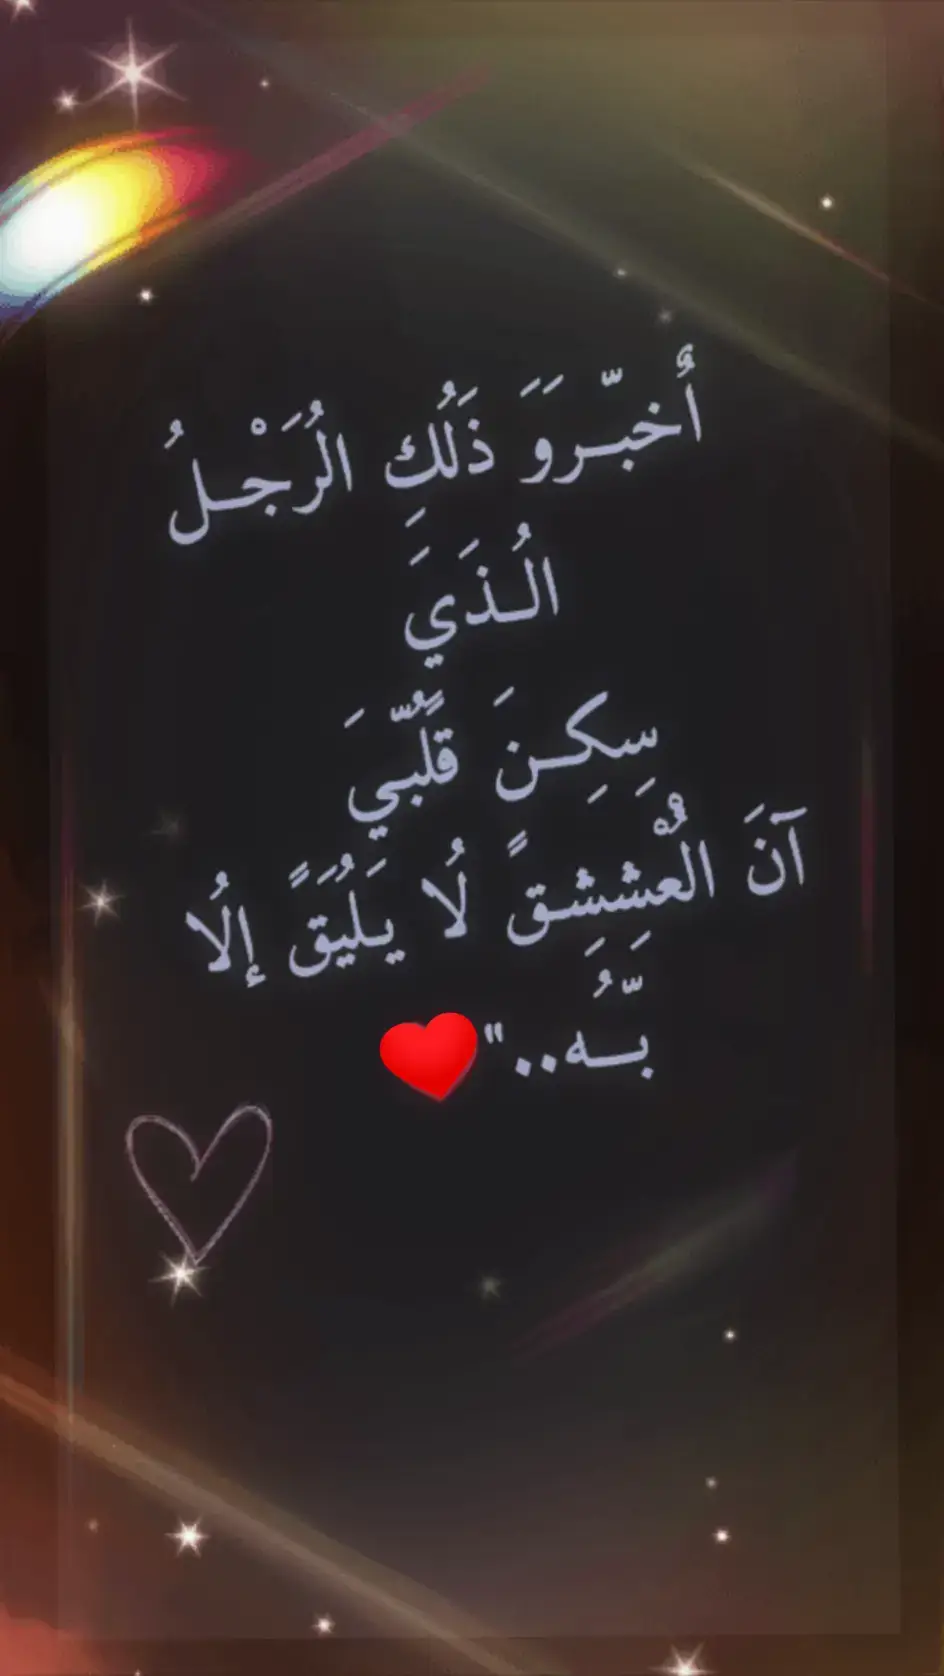 أُخبّـروَ َ ذَلُكِ الُرَجْـلُ
الُـذَيَ
سِكِـنَ قَلُبّـيَ
آنَ الُعْشِشِـقً لُا يَـلُيَقً إلُا
بّـهُ.."❤